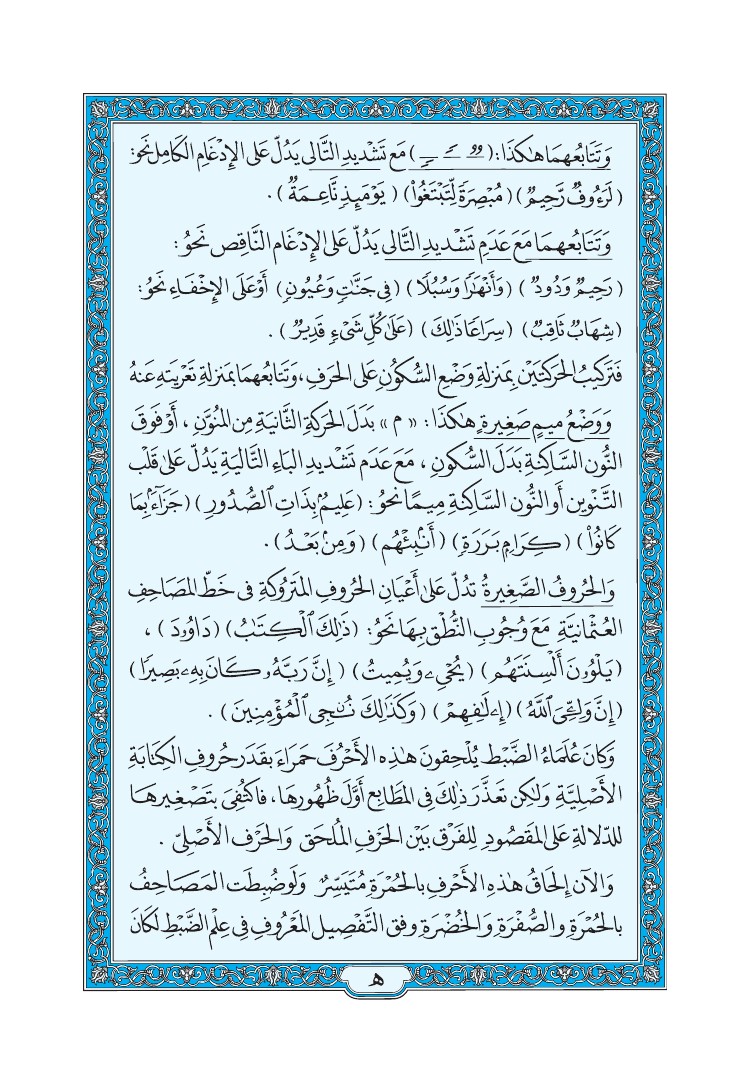 وَتَتَابُعهمَا هٰكَذَا: ( ـٌـ ـًـ ـٍـ ) مَع تَشْديدِ التَّالى يَدُلّ عَلى الإِدْغَامِ الكَامِل نَحوُ:
(لَرَءُوفٌ رَّحِيمٌ) (مُبْصِرَةً لِّتَبْتَغُوا۟) (يَوْمَئِذٍ نَّاعِمَةٌ) .
وَتَتَابُعهمَا مَعَ عَدَمِ تَشْديدِ التَّالى يَدُلّ عَلى الإِدْغَام النَّاقِص نَحْوُ :
(رَحِيمٌ وَدُودٌ) (وَأَنْهَٰرًا وَسُبُلًا) (فِى جَنَّٰتٍ وَعُيُونٍ) أوْ عَلى الإِخْفَاءِ نَحْوُ:
(شِهَابٌ ثَاقِبٌ) (سِرَاعًا ذَٰلِكَ) (عَلَىٰ كُلِّ شَىْءٍ قَدِيرٌ) .
فَتَركيبُ الحَرَكَتَيْن بِمَنزلةِ وَضْع السُّكُونِ عَلى الحَرفِ، وَتَتَابُعهُمَا بمَنزلةِ تَعْرِيَتِهِ عَنهُ
وَوَضْعُ ميمٍ صَغِيرةٍ هٰكَذَا: «م» بَدَلَ الحَركةِ الثَّانيَةِ مِن المُنَوَّنِ ، أَوْ فَوقَ
النُّون السَّاكِنةِ بَدَلَ السُّكُونِ ، مَعَ عَدَم تَشْديدِ البَاءِ التَّاليَةِ يَدُلّ عَلى قَلْبِ
التَّنْوين أو النُّون السَّاكِنةِ مِيمًا نحوُ: (عَلِيمُۢ بِذَاتِ ٱلصُّدُورِ) (جَزَآءَۢ بِمَا
كَانُوا۟) (كِرَامِۭ بَرَرَةٍ) (أَنۢبِئْهُم) (وَمِنۢ بَعْدُ) .
وَالحُروفُ الصَّغِيرةُ تَدُلّ عَلى أَعْيَانِ الحُروفِ المَتْرُوكَةِ فى خَطِّ المصَاحِفِ
العُثْمانيَّةِ مَعَ وُجُوبِ النُّطْقِ بِهَا نَحوُ: (ذَٰلِكَ ٱلْكِتَٰبُ) (دَاوُۥدَ) ،
(يَلْوُۥنَ أَلْسِنَتَهُم) (يُحْىِۦ وَيُمِيتُ) (إِنَّ رَبَّهُۥ كَانَ بِهِۦ بَصِيرًا)
(إِنَّ وَلِـِّۧىَ ٱللَّهُ) (إِۦلَٰفِهِمْ) (وَكَذَٰلِكَ نُـۨجِى ٱلْمُؤْمِنِينَ) .
وَكَانَ عُلَمَاءُ الضَّبْطِ يُلْحِقونَ هٰذِهِ الأَحْرُفَ حَمرَاءَ بِقَدَرِ حُروفِ الكِتَابَةِ
الأَصْلِيَّةِ وَلٰكِن تَعَذَّرَ ذٰلِكَ فِى المَطَابِعِ أَوَّلَ ظُهُورِهَا، فَاكتُفِىَ بتَصْغيرِهَا
للدّلالةِ عَلى المَقصُودِ لِلفَرْقِ بَيْن الحَرْفِ المُلْحَق وَالحَرْف الأَصْلِىّ .
وَالآن إلحَاقُ هٰذِهِ الأَحْرفِ بالحُمْرَةِ مُتَيَسِّرٌ وَلَو ضُبِطَت المَصَاحِفُ
بالحُمْرَةِ والصُّفْرَةِ وَالخُضْرَةِ وفق التَّفْصِيل المَعْرُوفِ فِى عِلْمِ الضَّبْطِ لَكَانَ
ﻫ